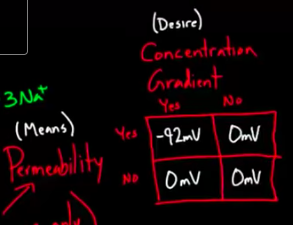 (Desire)
Concentration
Gradient
Yes No
3Na⁺
(Means)
Permeability
Yes -92mV 0mV
No 0mV 0mV